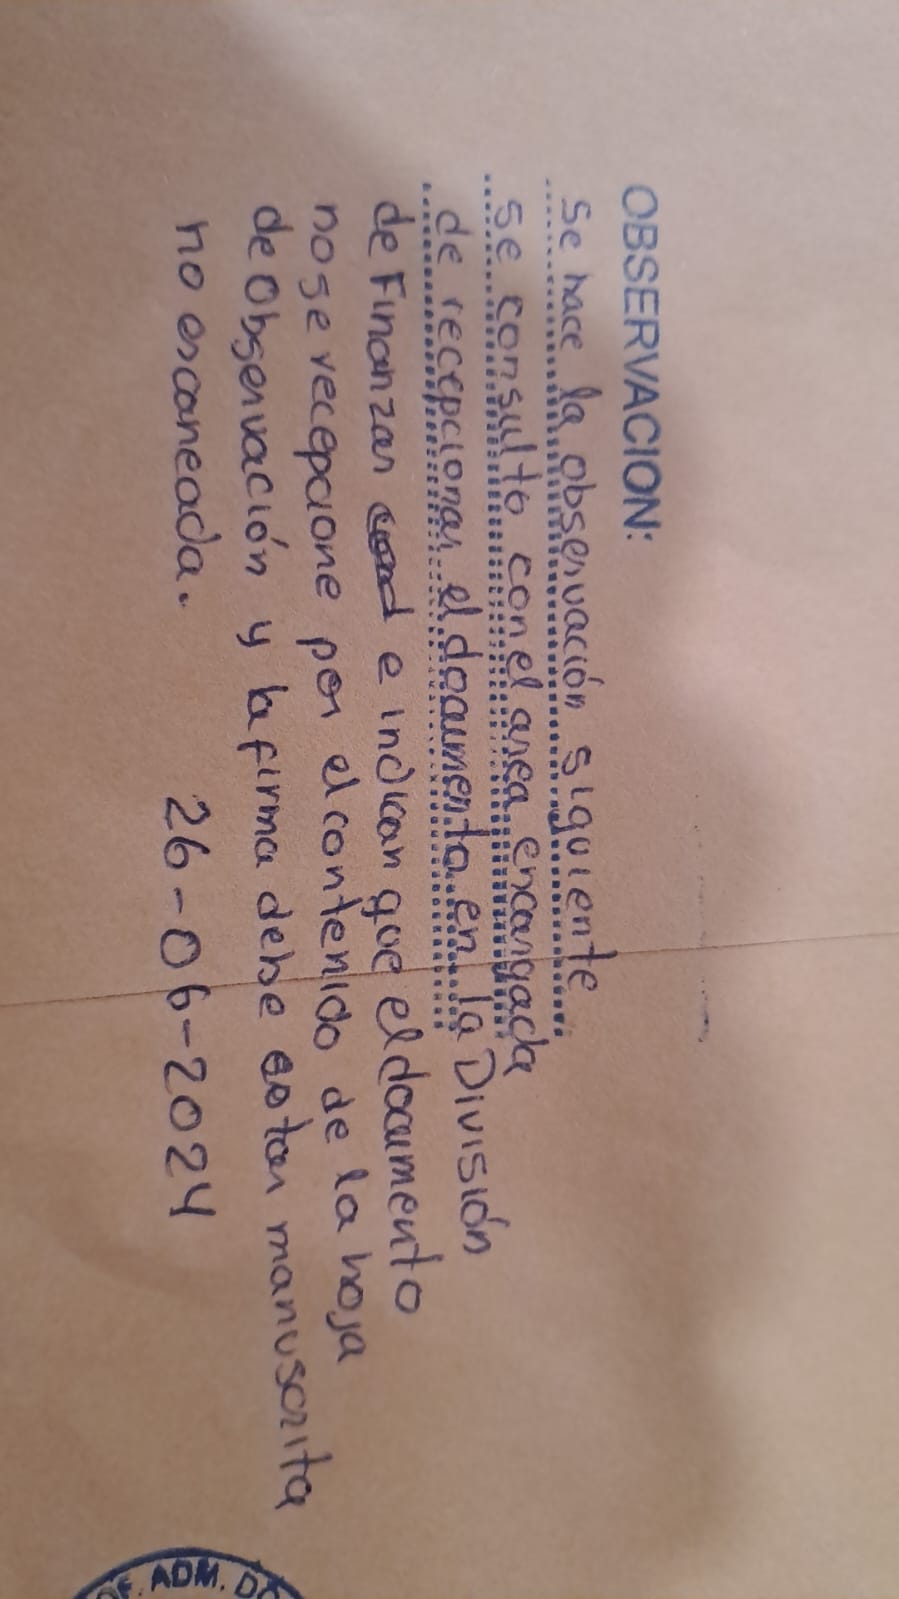 OBSERVACION:
Se hace la observación siguiente
se consulto con el area encargada
de recepcionar el documento en la División
de Finanzas e indican que el documento
no se recepcione por el contenido de la hoja
de Observación y la firma debe estar manuscrita
no escaneada. 26-06-2024
OF. ADM. DO